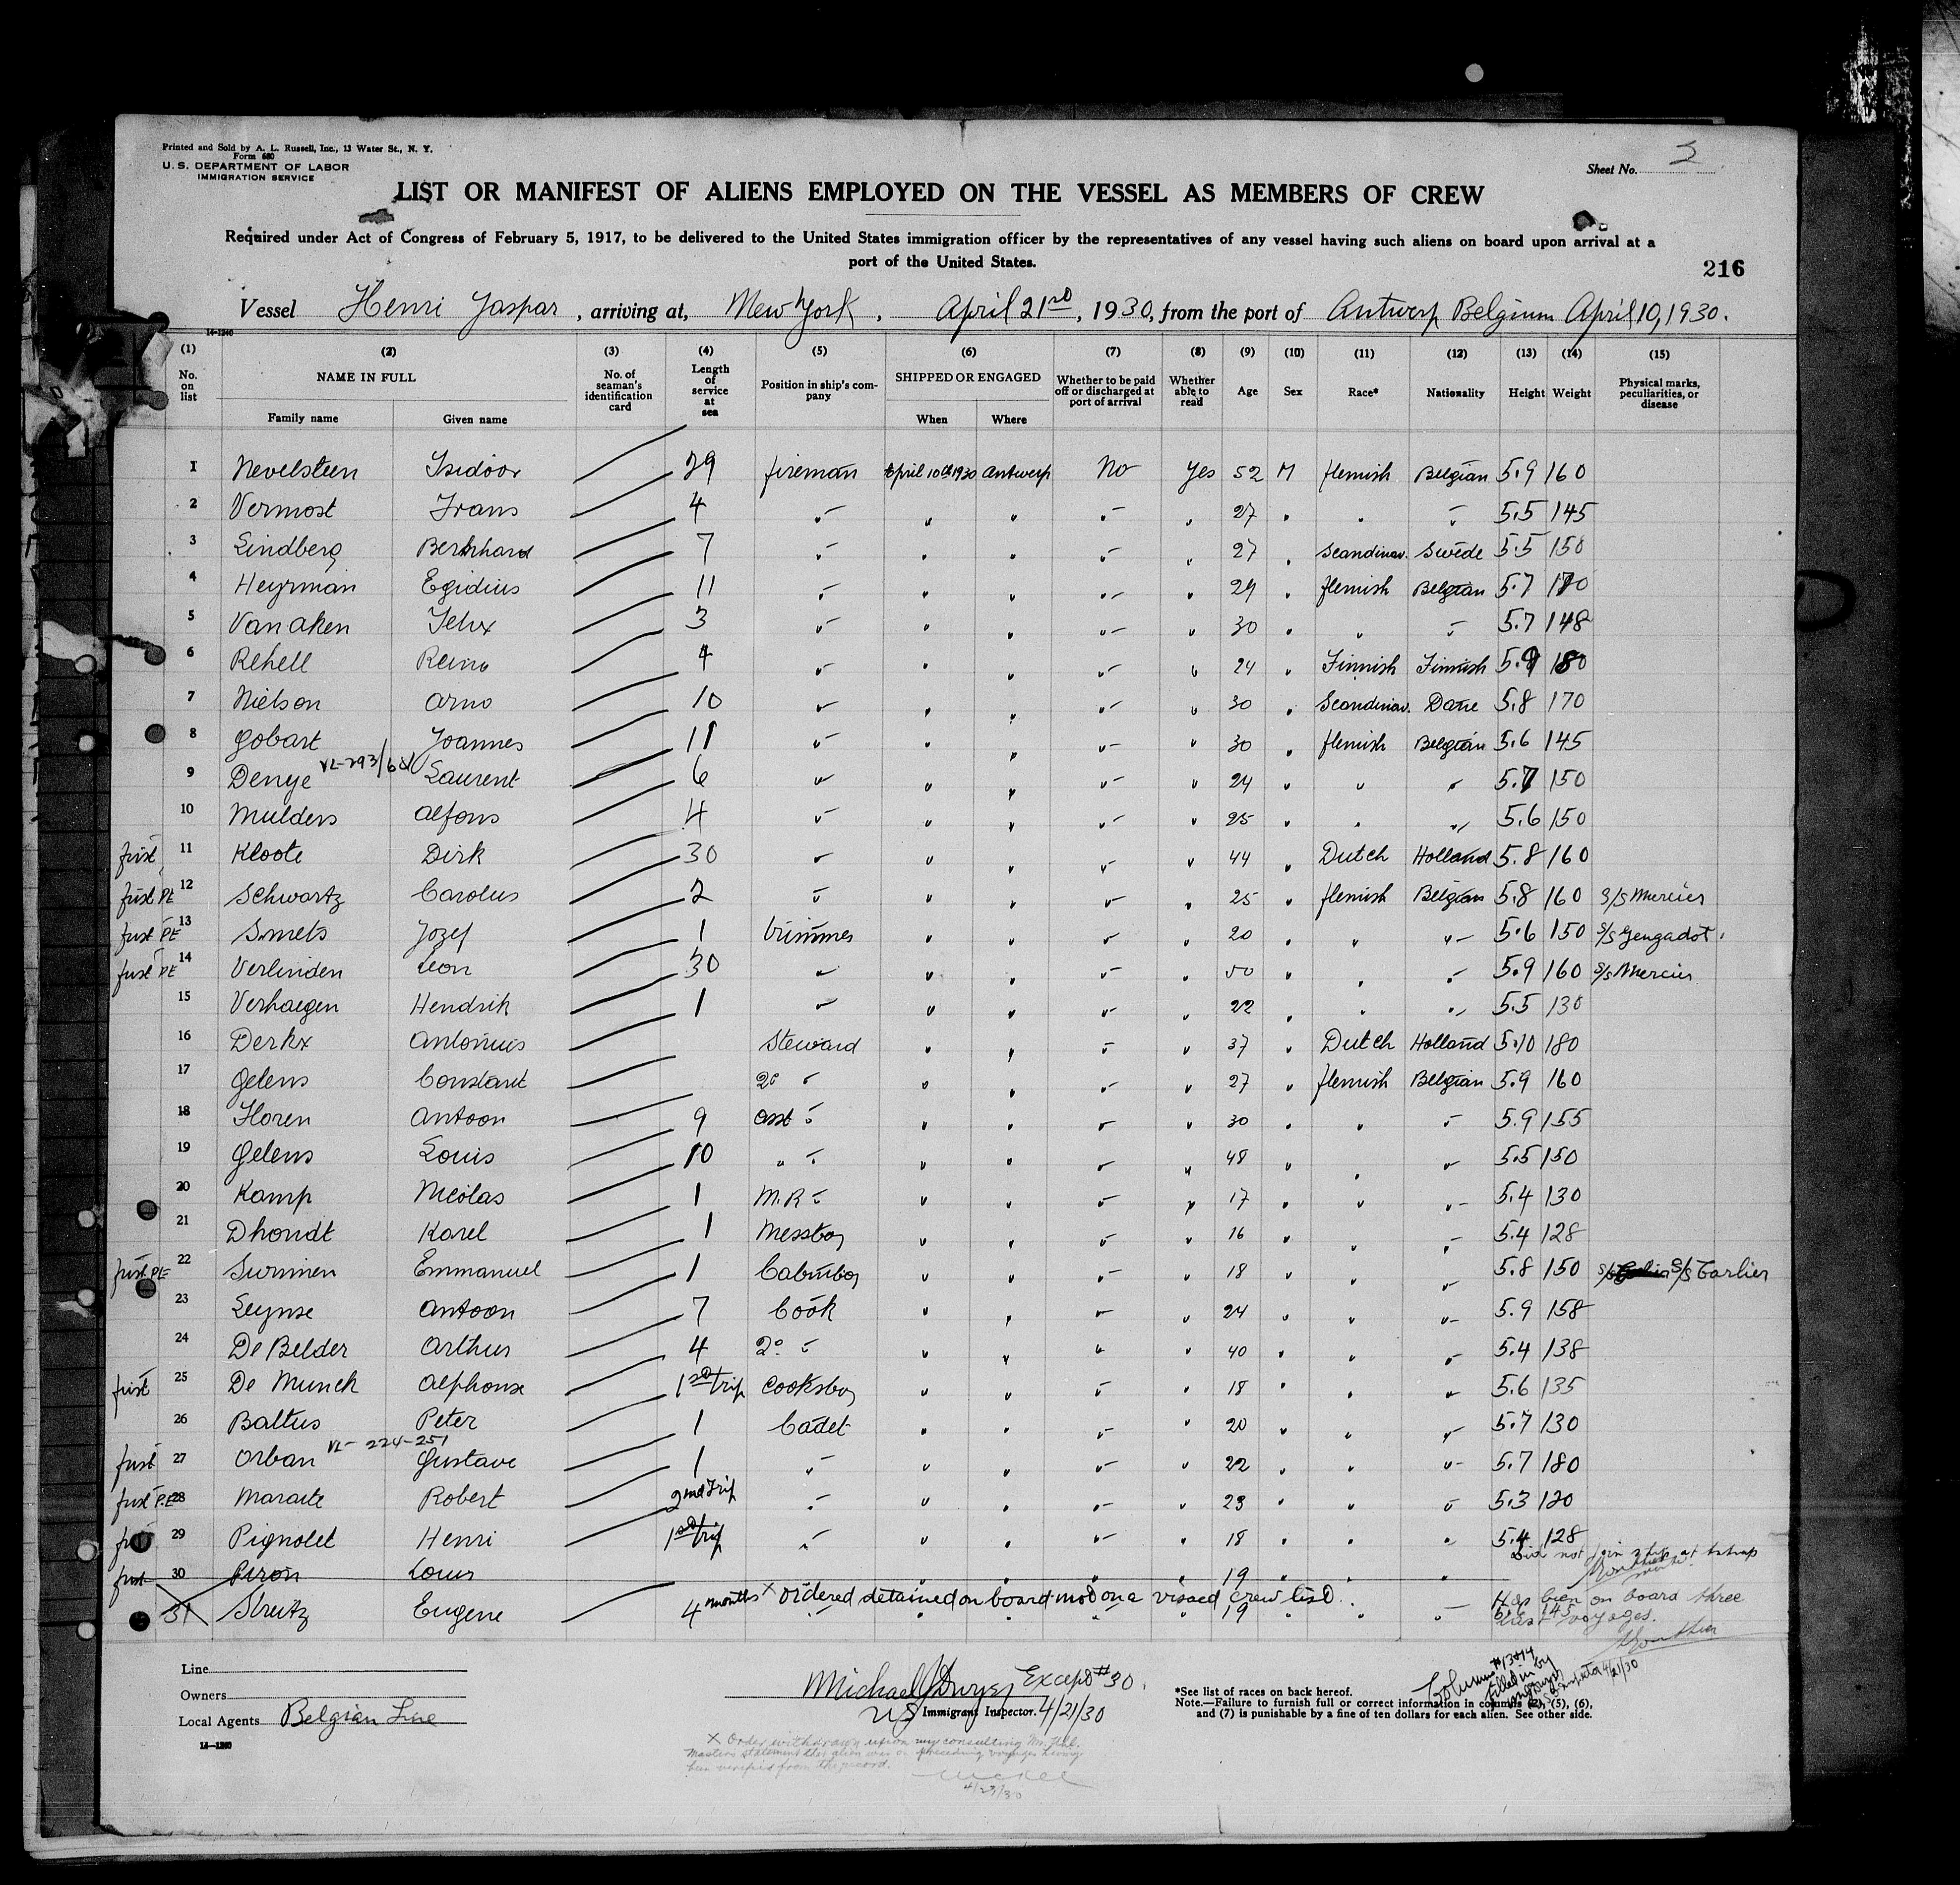 Printed and Sold by A. L. Russell, Inc., 13 Water St., N. Y.
Form 680
U. S. DEPARTMENT OF LABOR
IMMIGRATION SERVICE
Sheet No.
LIST OR MANIFEST OF ALIENS EMPLOYED ON THE VESSEL AS MEMBERS OF CREW
Required under Act of Congress of February 5, 1917, to be delivered to the United States immigration officer by the representatives of any vessel having such aliens on board upon arrival at a
port of the United States.
216
Vessel Henri Jaspar, arriving at, New York, April 21st, 1930, from the port of Antwerp Belgium April 10, 1930.
14-1240
(1) (2) (3) (4) (5) (6) (7) (8) (9) (10) (11) (12) (13) (14) (15)
No. on list NAME IN FULL Family name Given name No. of seaman's identification card Length of service at sea Position in ship's company SHIPPED OR ENGAGED When Where Whether to be paid off or discharged at port of arrival Whether able to read Age Sex Race* Nationality Height Weight Physical marks, peculiarities, or disease
1 Nevelsteen Isidoor 29 fireman April 10th 1930 Antwerp No Yes 52 M flemish Belgian 5.9 160
2 Vermost Frans 4 " " " " " 27 " " " 5.5 145
3 Lindberg Bernhard 7 " " " " " 27 " Scandinav. Swede 5.5 150
4 Heyrman Egidius 11 " " " " " 29 " flemish Belgian 5.7 170
5 Van aken Felix 3 " " " " " 30 " " " 5.7 148
6 Rehell Reino 4 " " " " " 24 " Finnish Finnish 5.9 180
7 Nielson Arno 10 " " " " " 30 " Scandinav. Dane 5.8 170
8 Gobart Joannes 11 " " " " " 30 " flemish Belgian 5.6 145
9 Denye Laurent 6 " " " " " 24 " " " 5.7 150
10 Mulders Alfons 4 " " " " " 25 " " " 5.6 150
first 11 Kloote Dirk 30 " " " " " 44 " Dutch Holland 5.8 160
first PE 12 Schwartz Carolus 2 " " " " " 25 " flemish Belgian 5.8 160 S/S Mercier
first PE 13 Smets Jozef 1 trimmer " " " " 20 " " " 5.6 150 S/S
first PE 14 Verlinden Leon 30 " " " " " 50 " " " 5.9 160 S/S Mercier
15 Verhaegen Hendrik 1 " " " " " 22 " " " 5.5 130
16 Derkx Antonius Steward " " " " 37 " Dutch Holland 5.10 180
17 Gelens Constant 2° " " " " " 27 " flemish Belgian 5.9 160
18 Floren Antoon 9 asst " " " " " 30 " " " 5.9 155
19 Gelens Louis 10 " " " " " " 48 " " " 5.5 150
20 Kamp Nicolas 1 M.R " " " " " 17 " " " 5.4 130
21 Dhondt Karel 1 Messboy " " " " 16 " " " 5.4 128
first PE 22 Emmanuel 1 Cabinboy " " " " 18 " " " 5.8 150 S/S Carlier
23 Leynse Antoon 7 Cook " " " " 24 " " " 5.9 158
24 De Belder Arthur 4 2° " " " " " 40 " " " 5.4 138
first 25 De Munck Alphonse 1st trip Cooksboy " " " " 18 " " " 5.6 135
26 Baltus Peter 1 Cadet " " " " 20 " " " 5.7 130
VL- 224-251
first 27 Orban Gustave 1 " " " " " 22 " " " 5.7 180
first P.E 28 Maraite Robert 2nd Trip " " " " " 23 " " " 5.3 120
29 Pignolet Henri 1st trip " " " " " 18 " " " 5.4 128
Did not join ship at
first 30 Piron Louis " " " " 19 " " "
4 months x ordered detained on board mod on a visaed crew list
31 Streitz Eugene " " " " 19 " "
Has been on board three
last voyages.
Line
Owners
Local Agents Belgian Line
14-1240
Michael J Dwyer Except #30.
US Immigrant Inspector. 4/21/30
*See list of races on back hereof.
Note.—Failure to furnish full or correct information in columns (2), (5), (6),
and (7) is punishable by a fine of ten dollars for each alien. See other side.
Columns #13+14
filled in by
4/21/30
X Order withdrawn upon my consulting Mr.
Masters statement this alien was on preceding voyages having
been verified from the record.
4/23/30